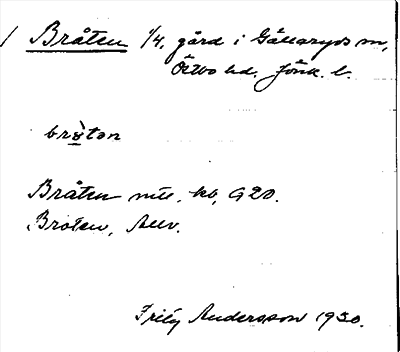 / Bråten 1/4, gård i Gällaryds sn,
Östbo hd. Jönk. l.
bròtən
Bråten mtl, kb, G20.
Broten, Allv.
Frily Andersson 1930.